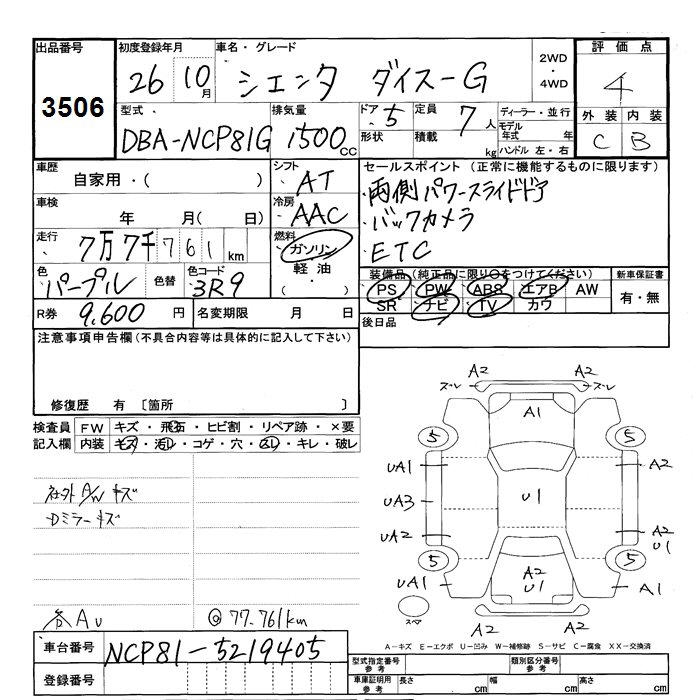 出品番号 初度登録年月 車名・グレード 評価点
3506 26 10月 シエンタ ダイスーG 2WD・4WD 4
外装 内装
C B
型式 排気量 ドア 形状 定員 積載 ディーラー・並行
DBA-NCP81G 1500cc 5 7人 kg モデル年式 年
ハンドル 左・右
車歴 シフト セールスポイント (正常に機能するものに限ります)
自家用・( ) AT ・両側パワースライドドア
車検 年 月( 日) 冷房 AAC ・バックカメラ
走行 7万7千761km 燃料 ガソリン・軽油・( ) ・ETC
色 色替 色コード 装備品(純正品に限り○をつけてください) 新車保証書
パープル 3R9 PS PW ABS エアB AW 有・無
R券 9,600円 名変期限 月 日 SR ナビ TV カワ
後日品
注意事項申告欄(不具合内容等は具体的に記入して下さい)
修復歴 有 〔箇所 〕
検査員記入欄 FW キズ・飛石・ヒビ割・リペア跡・×要
内装 キズ・汚レ・コゲ・穴・スレ・キレ・破レ
社外A/Wキズ
Dミラーキズ
各AU @77.761km
A2 A2
ズレ ズレ
A1
5 5
UA1 A2
U1
UA3
UA2 A2 U1
5 5
A2 U1
UA1 A1
スペア
A2 A2
A-キズ E-エクボ U-凹み W-補修跡 S-サビ C-腐食 XX-交換済
車台番号 NCP81-5219405
登録番号
型式指定番号参考 類別区分番号参考
車庫証明用参考 長さ cm 幅 cm 高さ cm